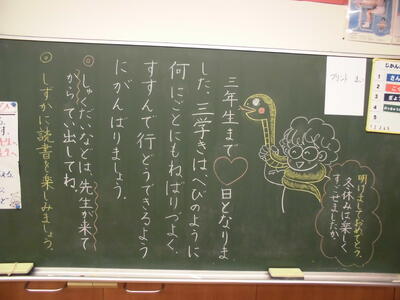 三年生まで♡日となりま
した。三学きは、へびのように
何ごとにもねばりづよく、
すすんで行どうできるよう
にがんばりましょう。
◎しゅくだいなどは、先生が来て
からてい出してね。
◎しずかに読書を楽しみましょう。
明けましておめでとう。
冬休みは楽しく
すごせましたか。
プリント
じかん